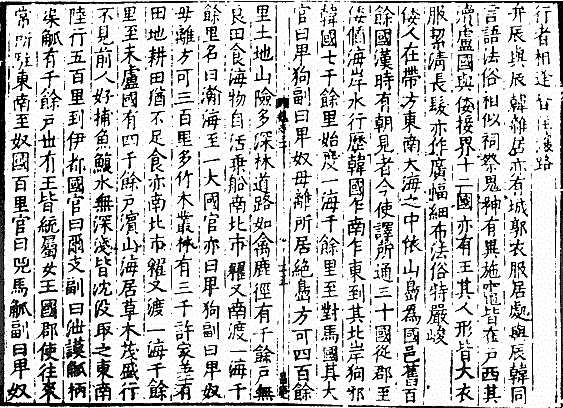 行者相逢皆住讓路
弁辰與辰韓雜居亦有城郭衣服居處與辰韓同
言語法俗相似祠祭鬼神有異施竈皆在戶西其
瀆盧國與倭接界十二國亦有王其人形皆大衣
服絜清長髮亦作廣幅細布法俗特嚴峻
倭人在帶方東南大海之中依山島爲國邑舊百
餘國漢時有朝見者今使譯所通三十國從郡至
倭循海岸水行歷韓國乍南乍東到其北岸狗邪
韓國七千餘里始度一海千餘里至對馬國其大
官曰卑狗副曰卑奴母離所居絶島方可四百餘
里土地山險多深林道路如禽鹿徑有千餘戶無
良田食海物自活乗船南北市糴又南渡一海千
餘里名曰瀚海至一大國官亦曰卑狗副曰卑奴
母離方可三百里多竹木叢林有三千許家差有
田地耕田猶不足食亦南北市糴又渡一海千餘
里至末盧國有四千餘戶濱山海居草木茂盛行
不見前人好捕魚鰒水無深淺皆沈沒取之東南
陸行五百里到伊都國官曰爾支副曰泄謨觚柄
渠觚有千餘戶丗有王皆統屬女王國郡使往來
常所駐東南至奴國百里官曰兕馬觚副曰卑奴